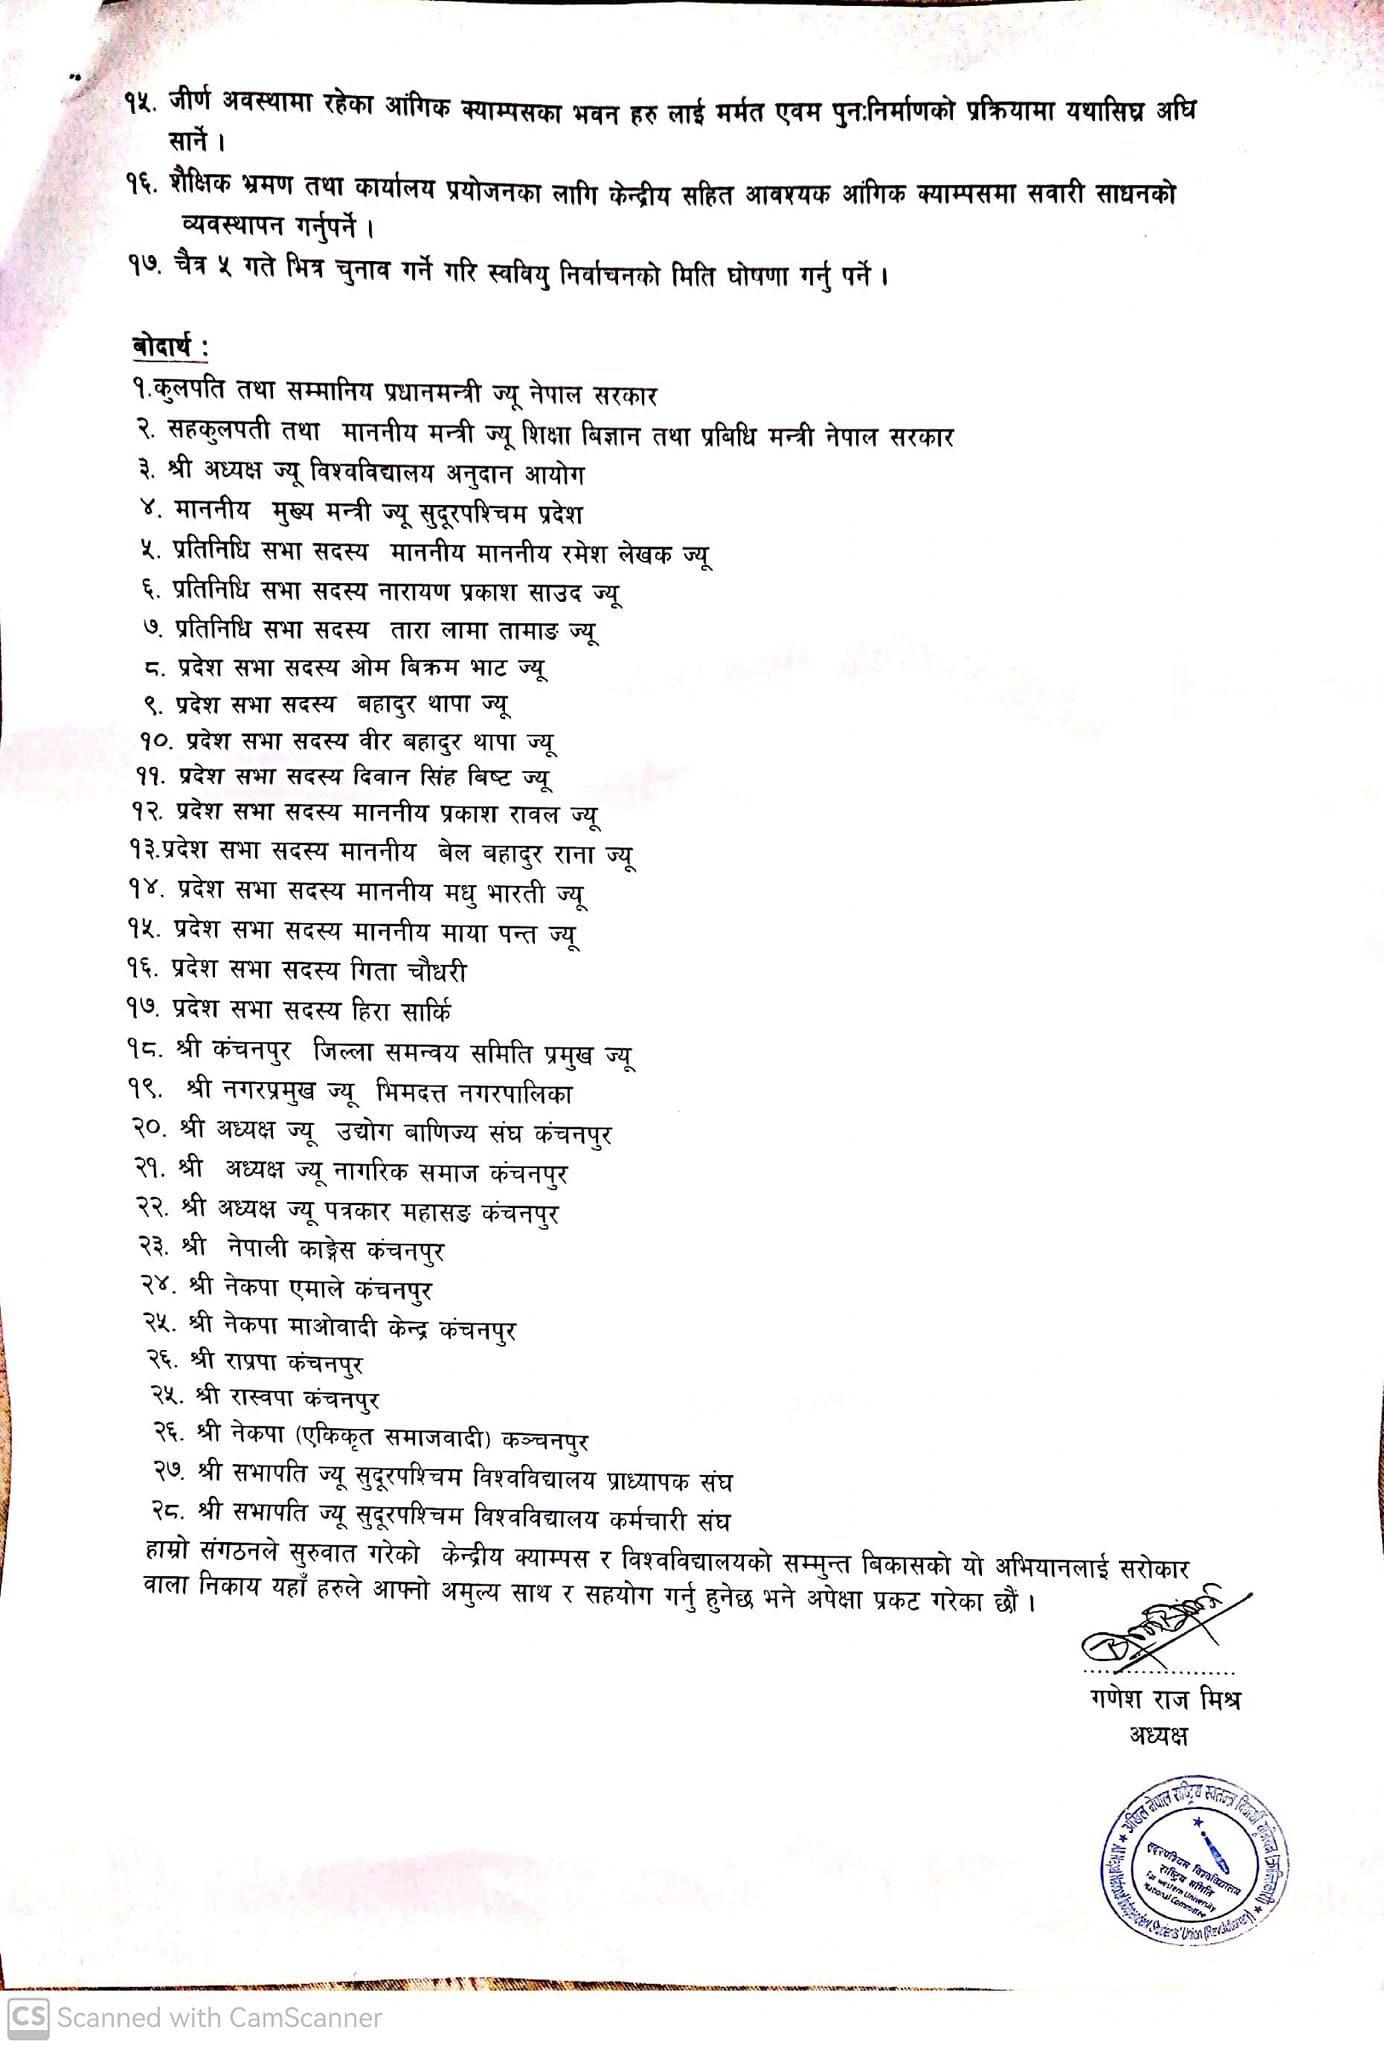 १५. जीर्ण अवस्थामा रहेका आंगिक क्याम्पसका भवन हरु लाई मर्मत एवम पुन:निर्माणको प्रक्रियामा यथासिघ्र अघि
सार्ने ।
१६. शैक्षिक भ्रमण तथा कार्यालय प्रयोजनका लागि केन्द्रीय सहित आवश्यक आंगिक क्याम्पसमा सवारी साधनको
व्यवस्थापन गर्नुपर्ने ।
१७. चैत्र ५ गते भित्र चुनाव गर्ने गरि स्ववियु निर्वाचनको मिति घोषणा गर्नु पर्ने ।
बोदार्थ :
१.कुलपति तथा सम्मानिय प्रधानमन्त्री ज्यू नेपाल सरकार
२. सहकुलपती तथा माननीय मन्त्री ज्यू शिक्षा बिज्ञान तथा प्रबिधि मन्त्री नेपाल सरकार
३. श्री अध्यक्ष ज्यू विश्वविद्यालय अनुदान आयोग
४. माननीय मुख्य मन्त्री ज्यू सुदूरपश्चिम प्रदेश
५. प्रतिनिधि सभा सदस्य माननीय माननीय रमेश लेखक ज्यू
६. प्रतिनिधि सभा सदस्य नारायण प्रकाश साउद ज्यू
७. प्रतिनिधि सभा सदस्य तारा लामा तामाङ ज्यू
८. प्रदेश सभा सदस्य ओम बिक्रम भाट ज्यू
९. प्रदेश सभा सदस्य बहादुर थापा ज्यू
१०. प्रदेश सभा सदस्य वीर बहादुर थापा ज्यू
११. प्रदेश सभा सदस्य दिवान सिंह बिष्ट ज्यू
१२. प्रदेश सभा सदस्य माननीय प्रकाश रावल ज्यू
१३.प्रदेश सभा सदस्य माननीय बेल बहादुर राना ज्यू
१४. प्रदेश सभा सदस्य माननीय मधु भारती ज्यू
१५. प्रदेश सभा सदस्य माननीय माया पन्त ज्यू
१६. प्रदेश सभा सदस्य गिता चौधरी
१७. प्रदेश सभा सदस्य हिरा सार्कि
१८. श्री कंचनपुर जिल्ला समन्वय समिति प्रमुख ज्यू
१९. श्री नगरप्रमुख ज्यू भिमदत्त नगरपालिका
२०. श्री अध्यक्ष ज्यू उद्योग बाणिज्य संघ कंचनपुर
२१. श्री अध्यक्ष ज्यू नागरिक समाज कंचनपुर
२२. श्री अध्यक्ष ज्यू पत्रकार महासङ कंचनपुर
२३. श्री नेपाली काङ्ग्रेस कंचनपुर
२४. श्री नेकपा एमाले कंचनपुर
२५. श्री नेकपा माओवादी केन्द्र कंचनपुर
२६. श्री राप्रपा कंचनपुर
२५. श्री रास्वपा कंचनपुर
२६. श्री नेकपा (एकिकृत समाजवादी) कञ्चनपुर
२७. श्री सभापति ज्यू सुदूरपश्चिम विश्वविद्यालय प्राध्यापक संघ
२८. श्री सभापति ज्यू सुदूरपश्चिम विश्वविद्यालय कर्मचारी संघ
हाम्रो संगठनले सुरुवात गरेको केन्द्रीय क्याम्पस र विश्वविद्यालयको सम्मुन्त बिकासको यो अभियानलाई सरोकार
वाला निकाय यहाँ हरुले आफ्नो अमुल्य साथ र सहयोग गर्नु हुनेछ भने अपेक्षा प्रकट गरेका छौं ।
गणेश राज मिश्र
अध्यक्ष
अखिल नेपाल राष्ट्रिय स्वतन्त्र विद्यार्थी यूनियन (क्रान्तिकारी)
सुदूरपश्चिम विश्वविद्यालय
राष्ट्रिय समिति
Far western University
National Committee
Independent Students' Union (Revolutionary)
CS Scanned with CamScanner